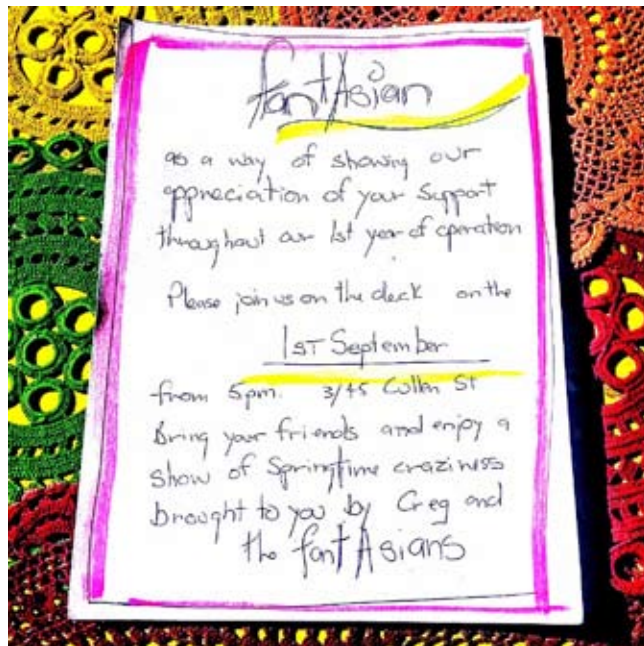 fantAsian
as a way of showing our
appreciation of your Support
throughout our 1st year of operation
Please join us on the deck on the
1ST September
from 5pm. 3/45 Cullen St
Bring your friends and enjoy a
show of Springtime craziness
brought to you by Greg and
the fantAsians